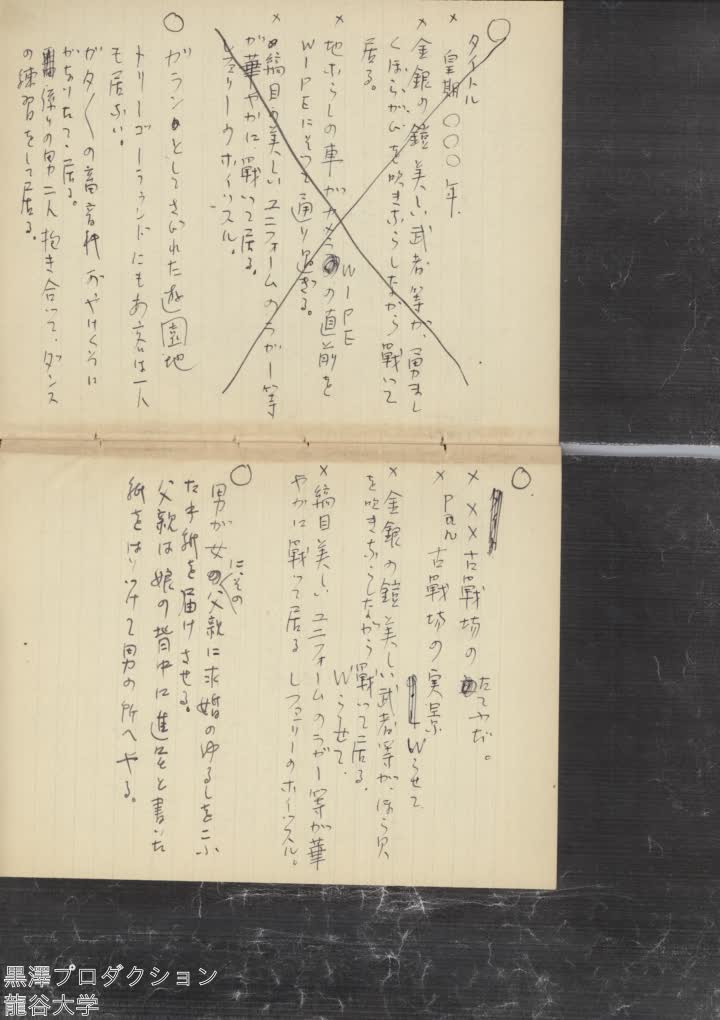 ◯
タイトル
× 皇期〇〇〇年
× 金銀の鎧美しい武者等が、勇まし
くほらがいを吹きならしながら戦って
居る。
WIPE
× 地ならしの車がカメラの直前を
WIPEにそって通り過ぎる。
× 縞目の美しいユニフォームのラガー等
が華やかに戦って居る。
レフェリーのホイッスル。
◯
ガランとしてさびれた遊園地
トリーゴーラウンドにもお客は一人
も居ない。
ガタ〱の畜音機がやけくそに
がなりたてゝ居る。
係りの男二人抱き合って、ダンス
の練習をして居る。
◯
× ××古戦場のたてふだ。
× Pan 古戦場の実景
Wらせて
× 金銀の鎧美しい武者等が、ほら貝
を吹きならしながら戦って居る。
Wらせて
× 縞目美しいユニフォームのラガー等が華
やかに戦って居る レフェリーのホイッスル。
◯
男が女にその父親に求婚のゆるしをこふ
た手紙を届けさせる。
父親は娘の背中に進呈と書いた
紙をはりつけて男の所へやる。
黒澤プロダクション
龍谷大学